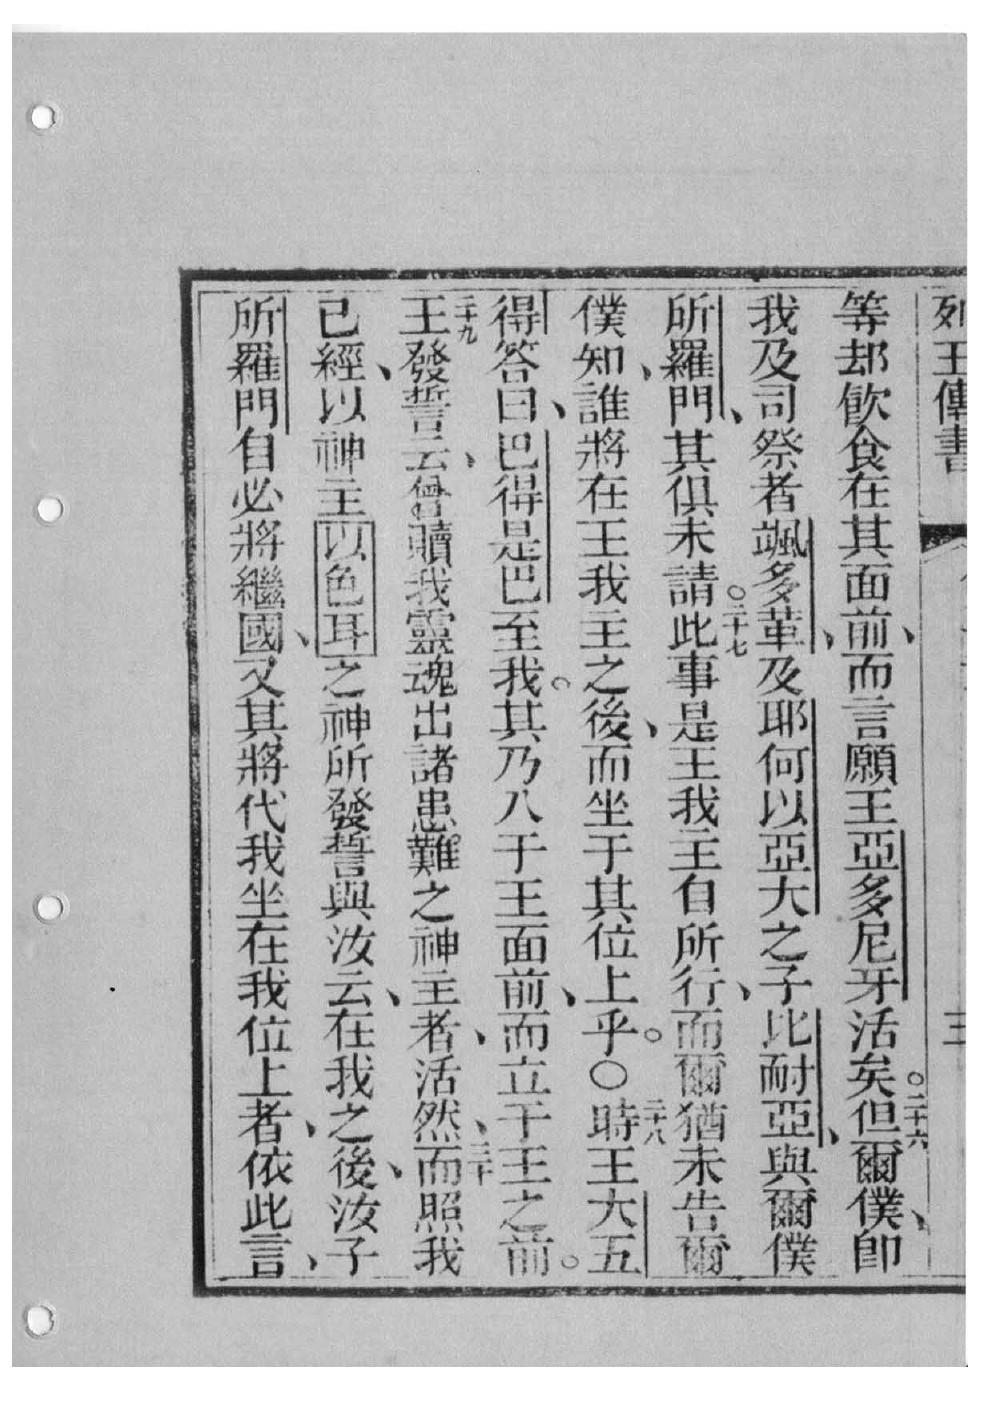 列王傳書 三
等却飮食在其面前、而言願王亞多尼牙活矣。二十六但爾僕、卽
我及司祭者颯多革、及耶何以亞大之子比耐亞、與爾僕
所羅門、其俱未請。二十七此事是王我主自所行、而爾猶未告爾
僕知、誰將在王我主之後、而坐于其位上乎。〇二十八時王大五
得答曰、巴得是巴至我。其乃入于王面前、而立于王之前。
二十九王發誓云、曾贖我靈魂出諸患難之神主者、活然、三十而照我
已經、以神主以色耳之神所發誓與汝云、在我之後、汝子
所羅門自必將繼國、又其將代我坐在我位上者、依此言、